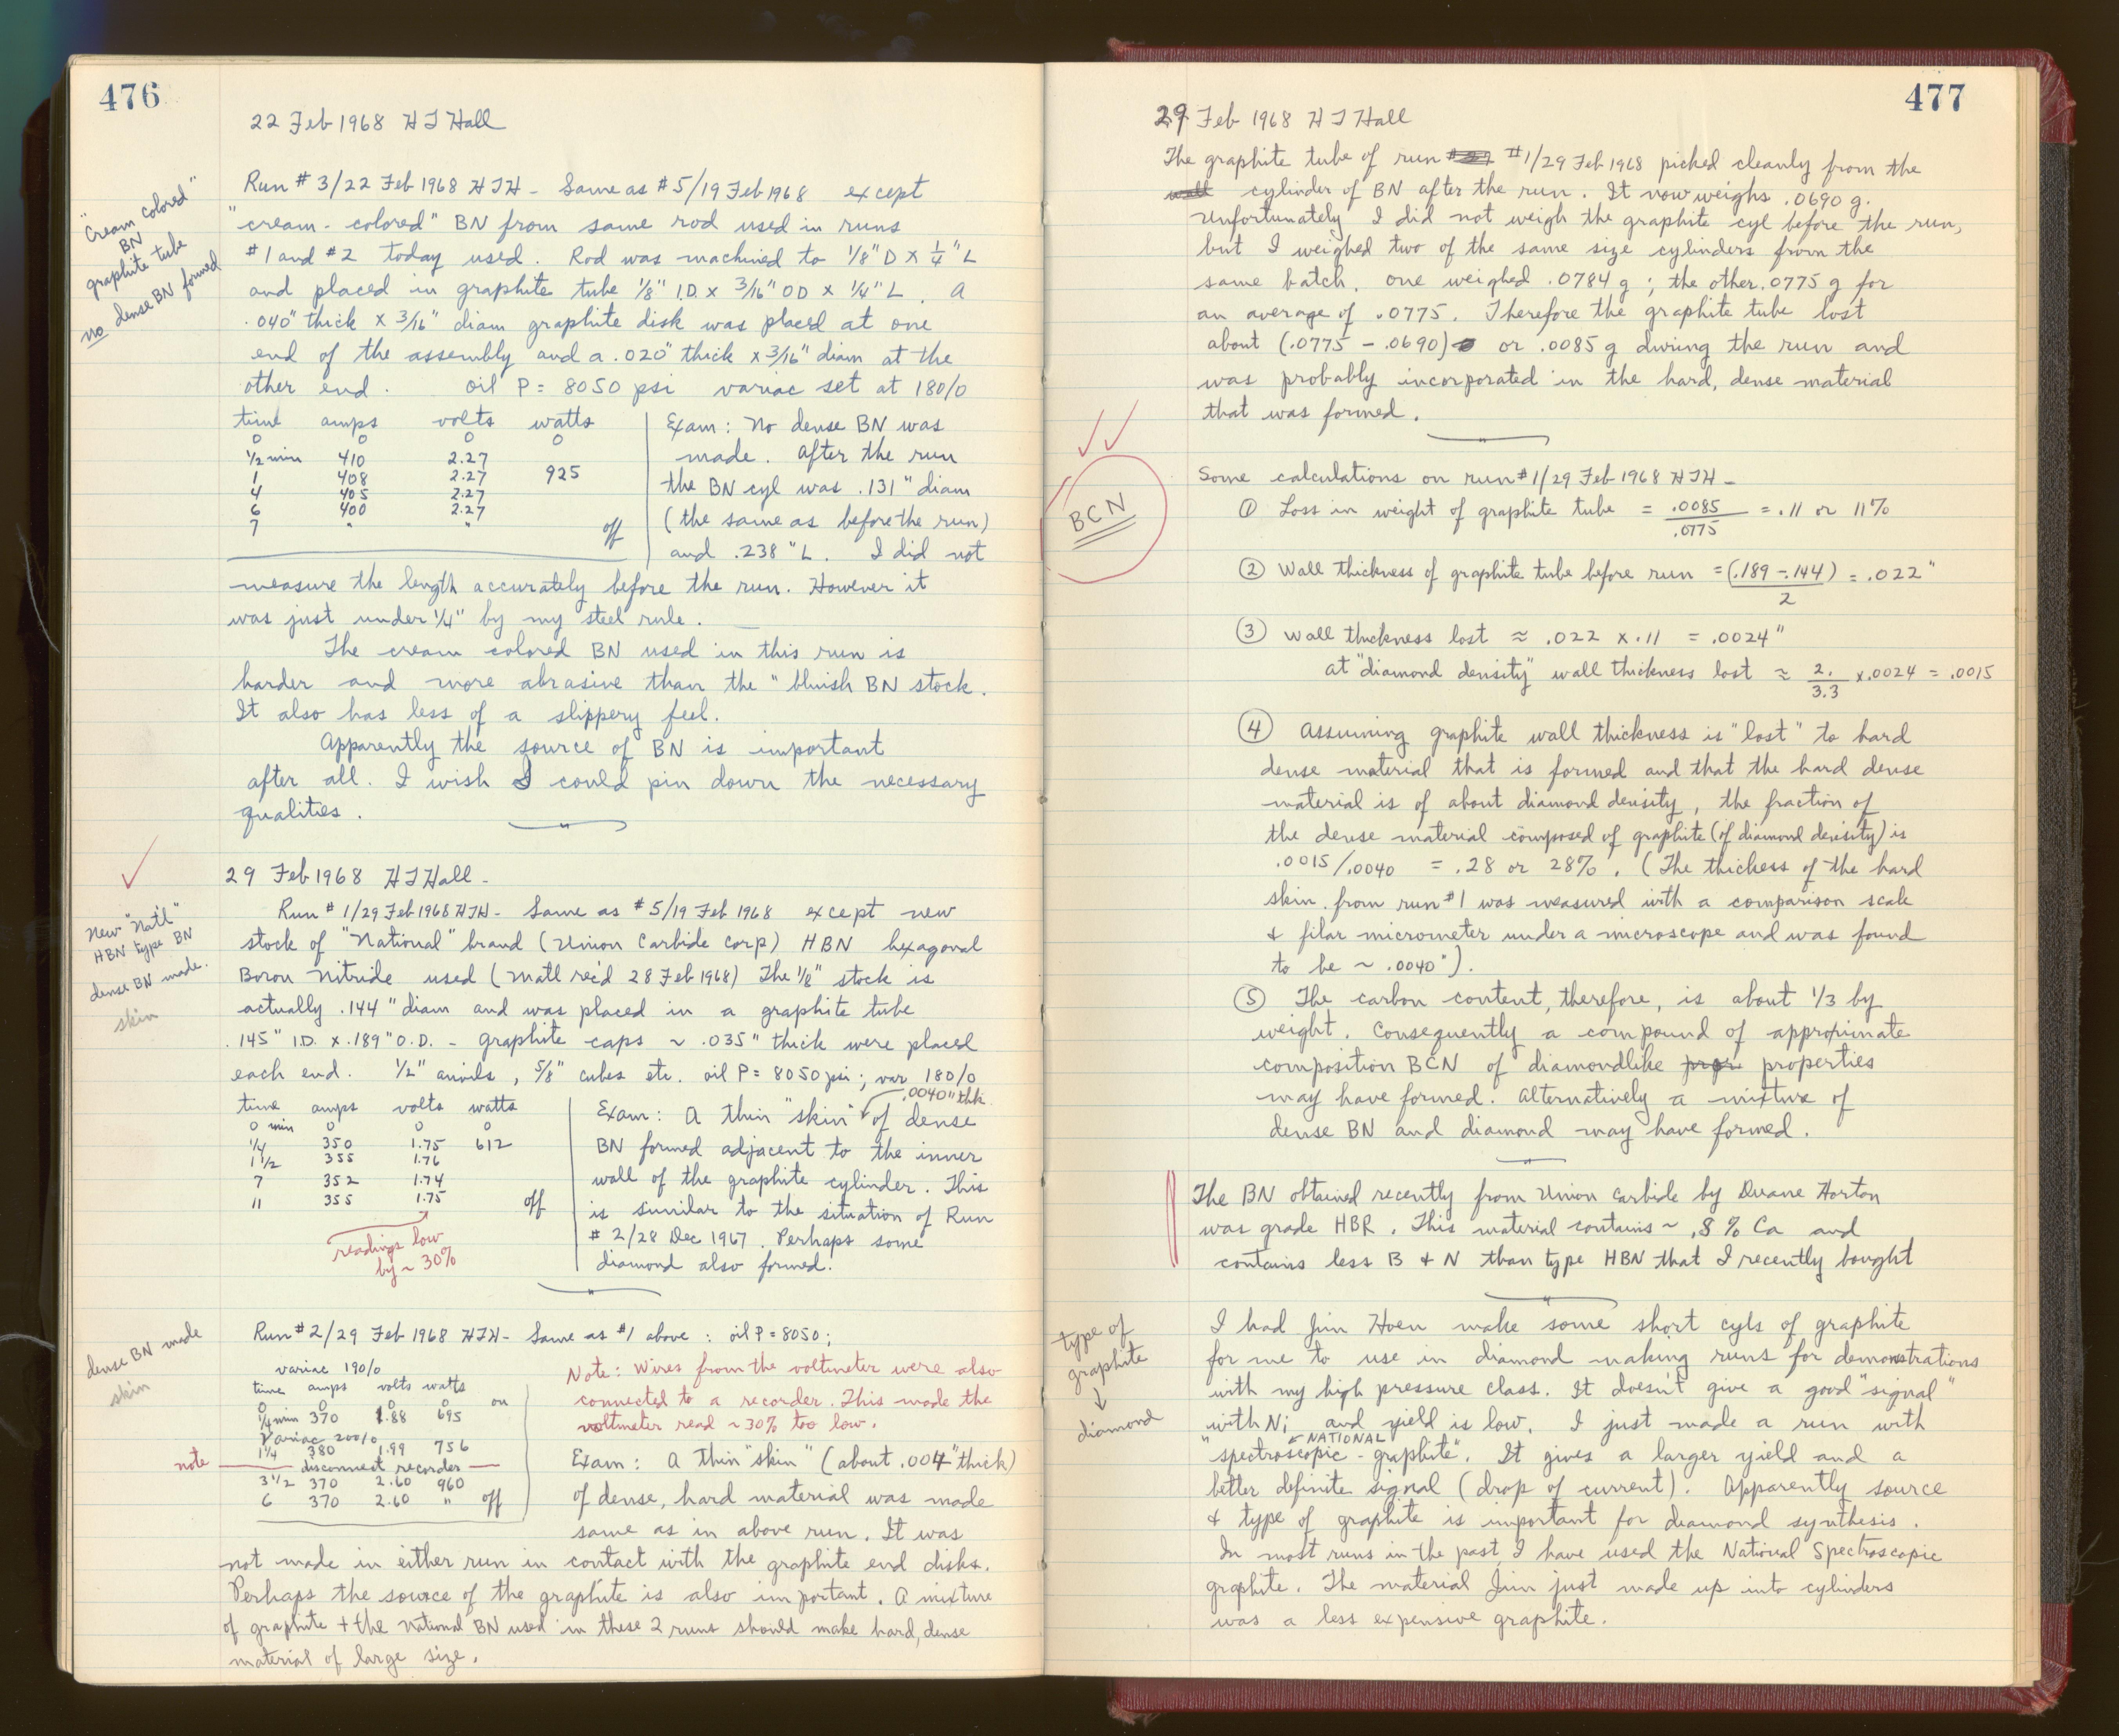 476
22 Feb 1968 H T Hall
"Cream colored"
BN
graphite tube
no dense BN formed
Run # 3/22 Feb 1968 HTH - Same as #5/19 Feb 1968 except
"cream-colored" BN from same rod used in runs
#1 and #2 today used. Rod was machined to 1/8" D x 1/4" L
and placed in graphite tube 1/8" I.D. x 3/16" OD x 1/4" L. A
.040" thick x 3/16" diam graphite disk was placed at one
end of the assembly and a .020" thick x 3/16" diam at the
other end. oil P = 8050 psi variac set at 180/0
time amps volts watts
0 0 0 0
1/2 min 410 2.27
1 408 2.27 925
4 405 2.27
6 400 2.27
7 " " off
Exam: No dense BN was
made. After the run
the BN cyl was .131" diam
(the same as before the run)
and .238" L. I did not
measure the length accurately before the run. However it
was just under 1/4" by my steel rule.
The cream colored BN used in this run is
harder and more abrasive than the "bluish BN stock.
It also has less of a slippery feel.
Apparently the source of BN is important
after all. I wish I could pin down the necessary
qualities.
29 Feb 1968 H T Hall -
New "Nat'l"
HBN type BN
dense BN made.
skin
Run # 1/29 Feb 1968 HTH - Same as #5/19 Feb 1968 except new
stock of "National" brand (Union Carbide Corp) HBN hexagonal
Boron Nitride used (Matl rec'd 28 Feb 1968) The 1/8" stock is
actually .144" diam and was placed in a graphite tube
.145" I.D. x .189" O.D. - graphite caps ~ .035" thick were placed
each end. 1/2" anvils, 5/8" cubes etc. oil P = 8050 psi; var 180/0
time amps volts watts
0 min 0 0 0
1/4 350 1.75 612
1 1/2 355 1.76
7 352 1.74
11 355 1.75 off
readings low
by ~ 30%
.0040" thk.
Exam: A thin "skin" of dense
BN formed adjacent to the inner
wall of the graphite cylinder. This
is similar to the situation of Run
# 2/28 Dec 1967. Perhaps some
diamond also formed.
dense BN made
skin
Run # 2/29 Feb 1968 HTH - Same as #1 above: oil P = 8050;
variac 190/0
time amps volts watts
0 0 0 0 on
1/4 min 370 1.88 695
Variac 200/0
1 1/4 380 1.99 756
note disconnect recorder
3 1/2 370 2.60 960
6 370 2.60 " off
Note: Wires from the voltmeter were also
connected to a recorder. This made the
voltmeter read ~30% too low.
Exam: A thin "skin" (about .004" thick)
of dense, hard material was made
same as in above run. It was
not made in either run in contact with the graphite end disks.
Perhaps the source of the graphite is also important. A mixture
of graphite + the National BN used in these 2 runs should make hard, dense
material of large size.
477
29 Feb 1968 H T Hall
The graphite tube of run #1/29 Feb 1968 picked cleanly from the
cylinder of BN after the run. It now weighs .0690 g.
Unfortunately I did not weigh the graphite cyl before the run,
but I weighed two of the same size cylinders from the
same batch. One weighed .0784 g; the other .0775 g for
an average of .0775. Therefore the graphite tube lost
about (.0775 - .0690) or .0085 g during the run and
was probably incorporated in the hard, dense material
that was formed.
BCN
Some calculations on run #1/29 Feb 1968 HTH -
① Loss in weight of graphite tube = .0085/.0775 = .11 or 11%
② Wall thickness of graphite tube before run = (.189 - .144)/2 = .022"
③ Wall thickness lost ≈ .022 x .11 = .0024"
at "diamond density" wall thickness lost ≈ 2./3.3 x .0024 = .0015
④ Assuming graphite wall thickness is "lost" to hard
dense material that is formed and that the hard dense
material is of about diamond density, the fraction of
the dense material composed of graphite (of diamond density) is
.0015/.0040 = .28 or 28%. (The thickess of the hard
skin from run #1 was measured with a comparison scale
& filar micrometer under a microscope and was found
to be ~ .0040").
⑤ The carbon content, therefore, is about 1/3 by
weight. Consequently a compound of approximate
composition BCN of diamondlike properties
may have formed. Alternatively a mixture of
dense BN and diamond may have formed.
The BN obtained recently from Union Carbide by Duane Horton
was grade HBR. This material contains ~ .8 % Ca and
contains less B & N than type HBN that I recently bought
type of
graphite
↓
diamond
I had Jim Hoen make some short cyls of graphite
for me to use in diamond making runs for demonstrations
with my high pressure class. It doesn't give a good "signal"
with Ni and yield is low. I just made a run with
NATIONAL
"spectroscopic-graphite". It gives a larger yield and a
better definite signal (drop of current). Apparently source
& type of graphite is important for diamond synthesis.
In most runs in the past I have used the National Spectroscopic
graphite. The material Jim just made up into cylinders
was a less expensive graphite.